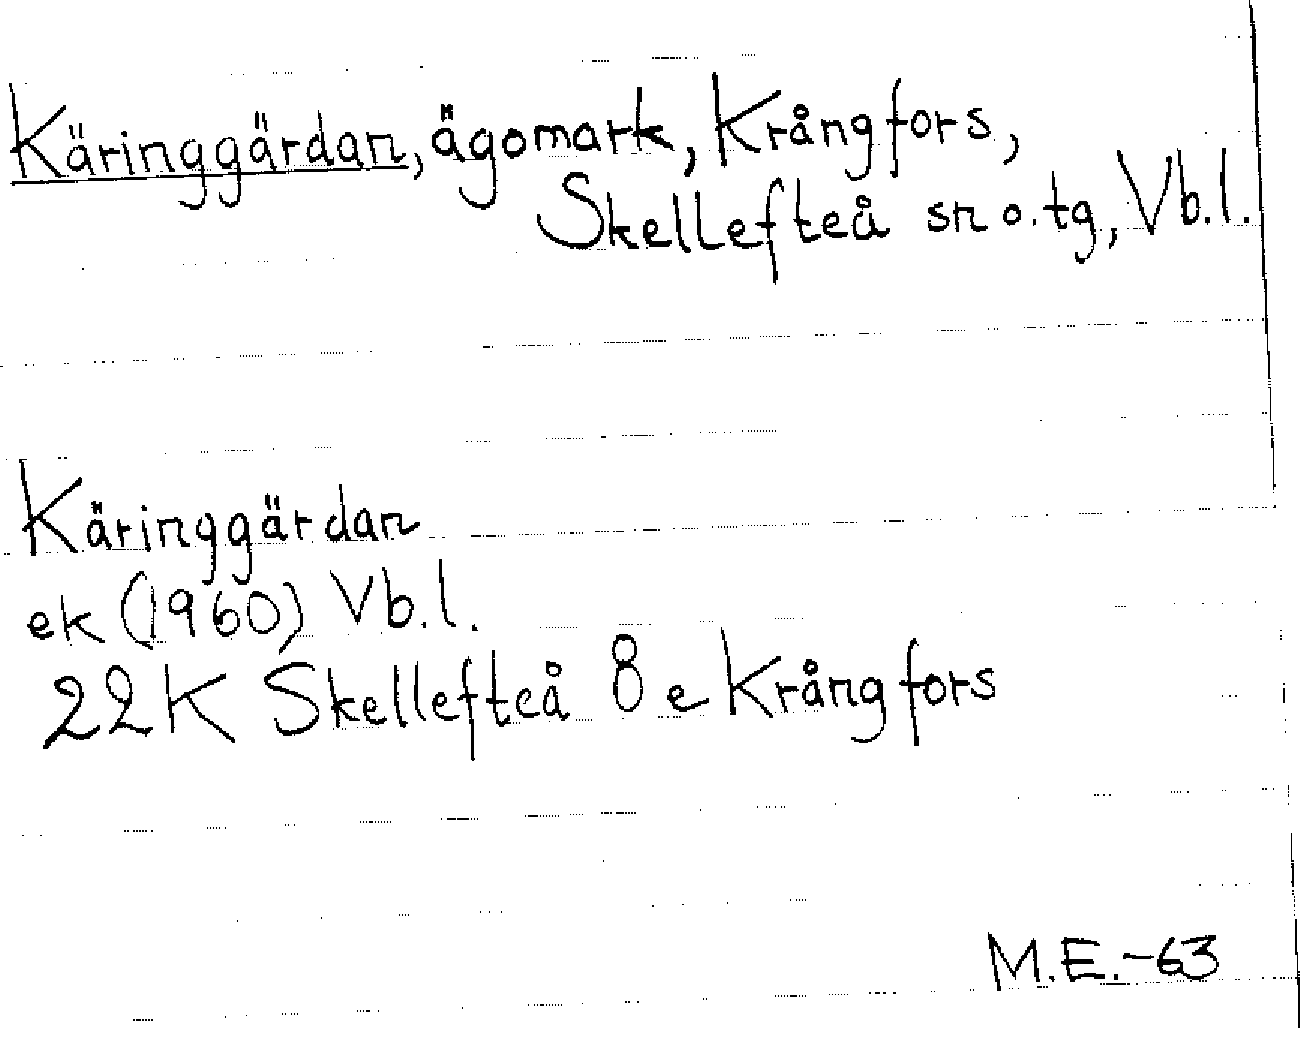 Käringgärdan, ägomark, Krångfors,
Skellefteå sn o. tg, Vb.l.
Käringgärdan
ek (1960) Vb.l.
22K Skellefteå 8 e Krångfors
M.E.-63